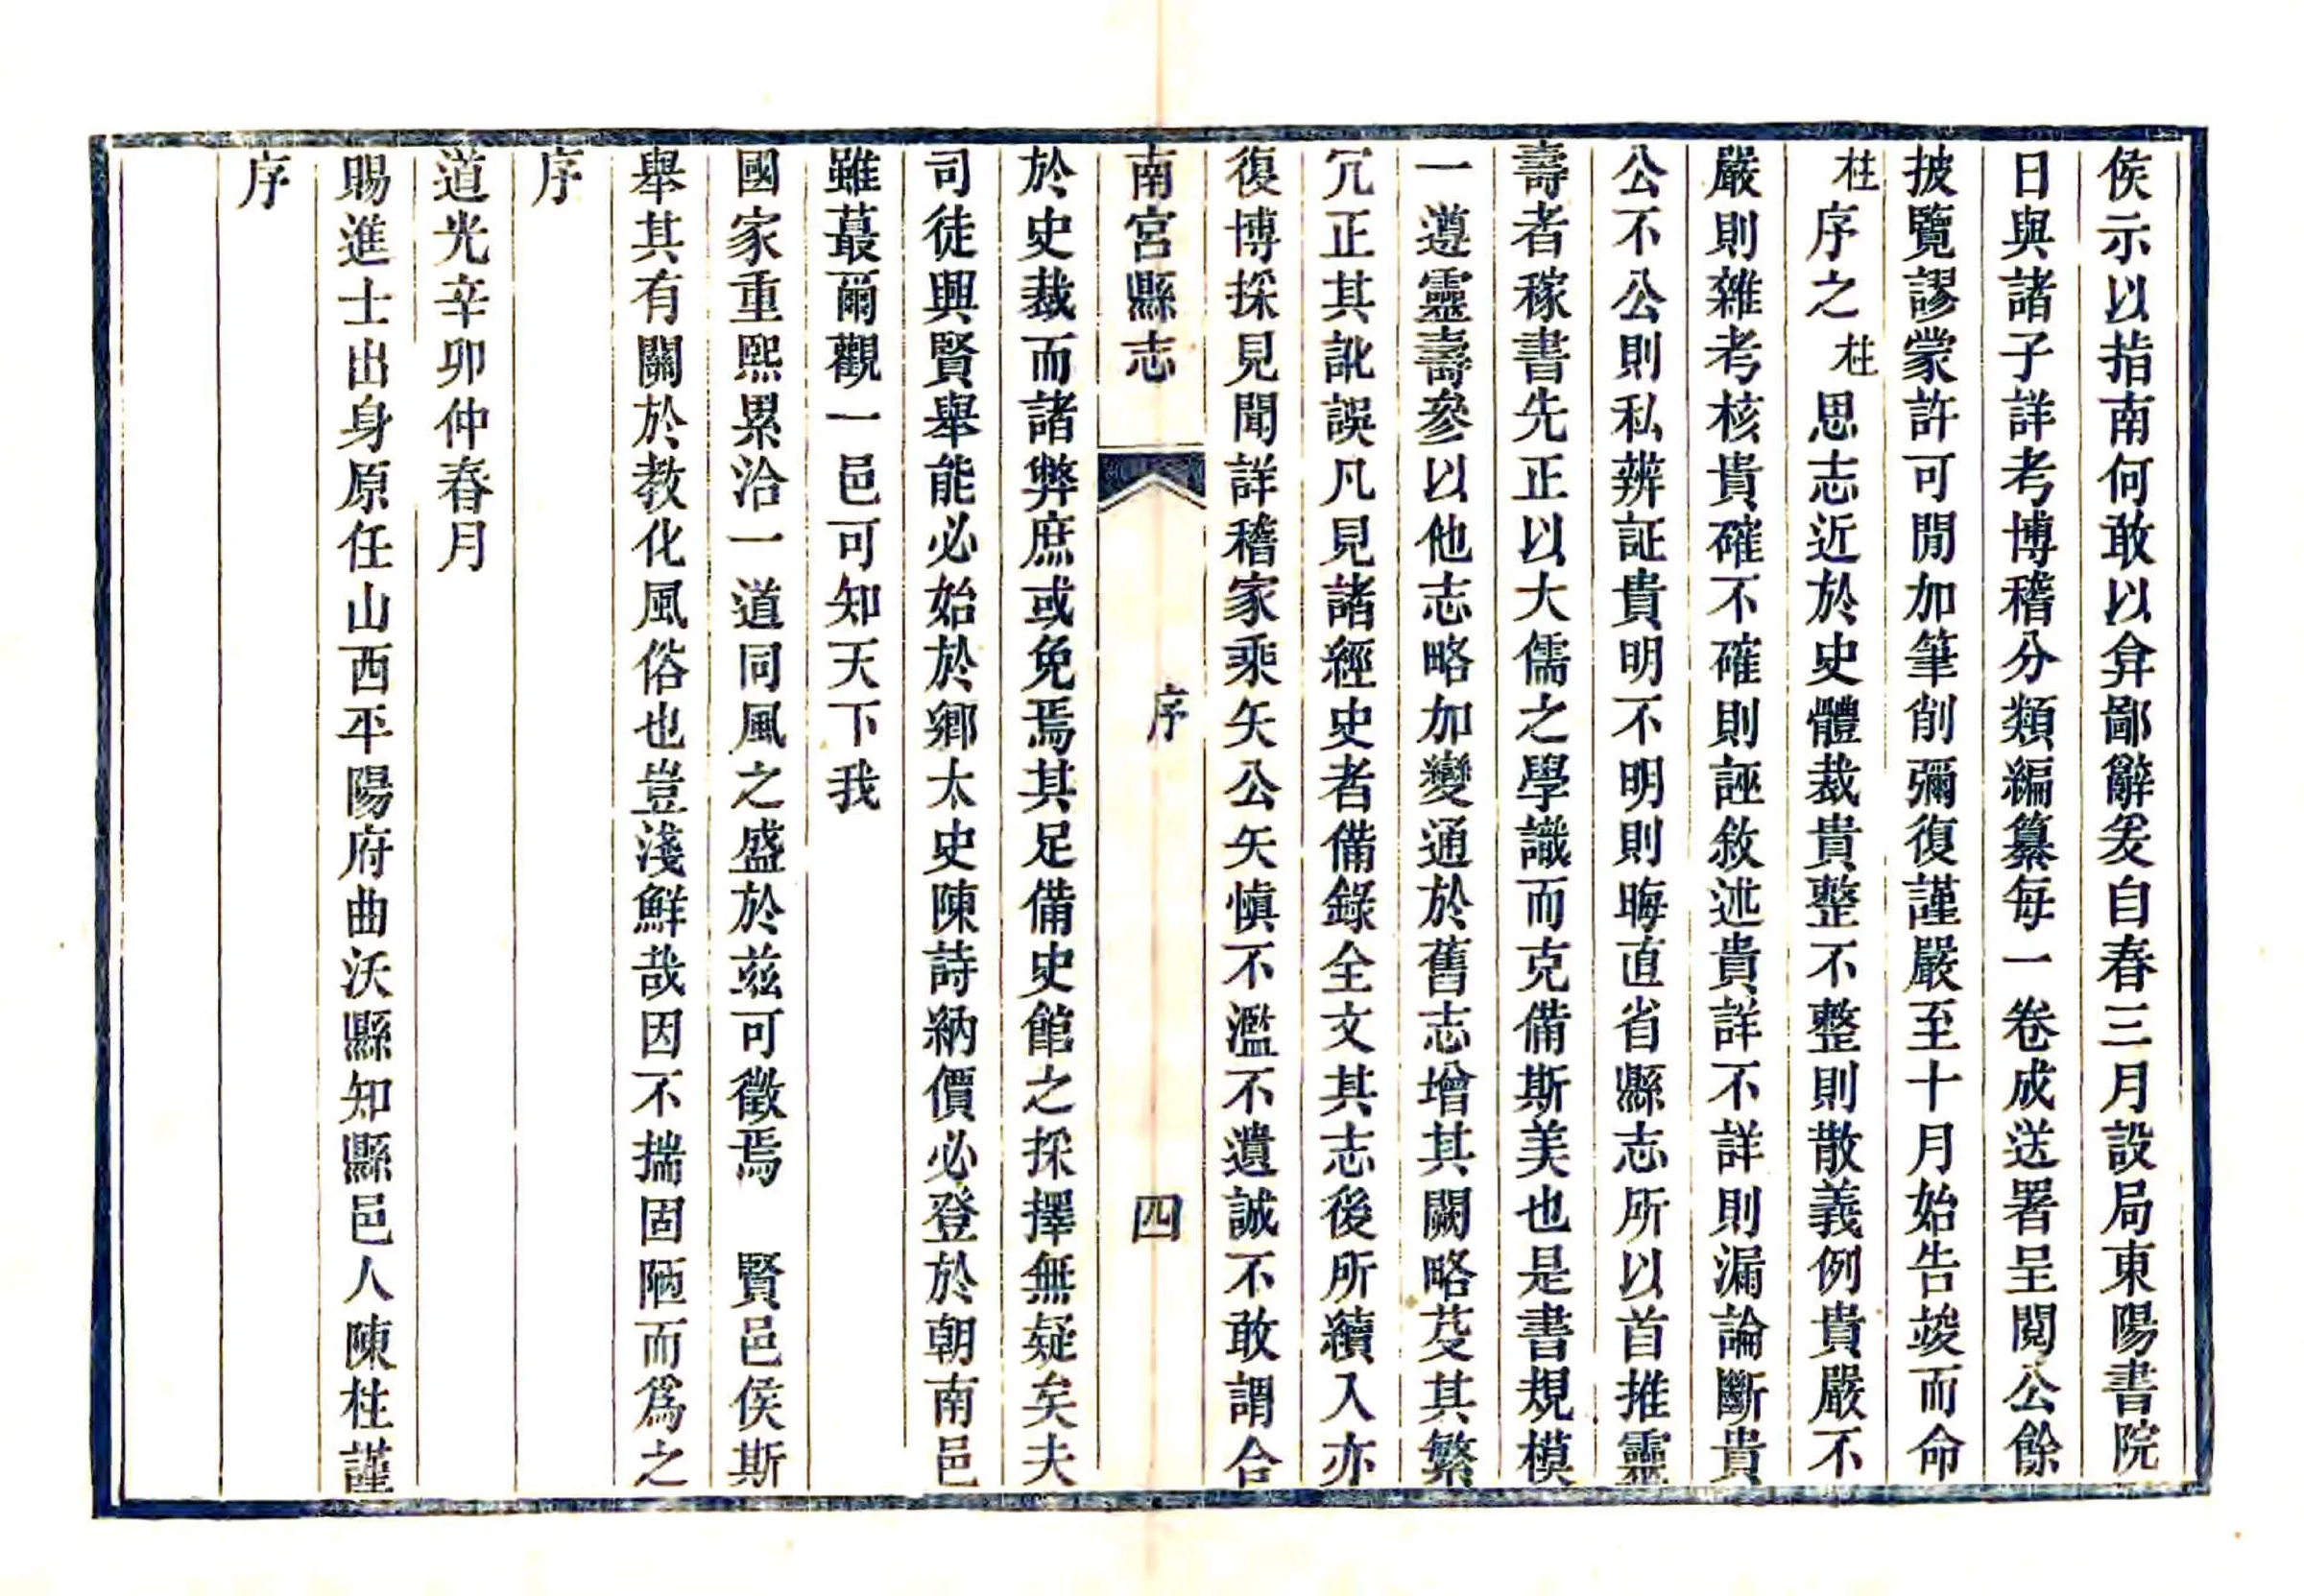 侯示以指南何敢以弇鄙辭爰自春三月設局東陽書院
日與諸子詳考博稽分類編纂每一卷成送署呈閱公餘
披覽謬蒙許可閒加筆削彌復謹嚴至十月始告竣而命
柱序之柱思志近於史體裁貴整不整則散義例貴嚴不
嚴則雜考核貴確不確則誣敘述貴詳不詳則漏論斷貴
公不公則私辨証貴明不明則晦直省縣志所以首推靈
壽者稼書先正以大儒之學識而克備斯美也是書規模
一遵靈壽參以他志略加變通於舊志增其闕略芟其繁
冗正其訛誤凡見諸經史者備錄全文其志後所續入亦
復博採見聞詳稽家乘矢公矢愼不濫不遺誠不敢謂合
南宮縣志 序 四
於史裁而諸弊庶或免焉其足備史館之採擇無疑矣夫
司徒興賢舉能必始於鄉太史陳詩納價必登於朝南邑
雖蕞爾觀一邑可知天下我
國家重熙累洽一道同風之盛於兹可徵焉 賢邑侯斯
舉其有關於教化風俗也豈淺鮮哉因不揣固陋而爲之
序
道光辛卯仲春月
賜進士出身原任山西平陽府曲沃縣知縣邑人陳柱謹
序